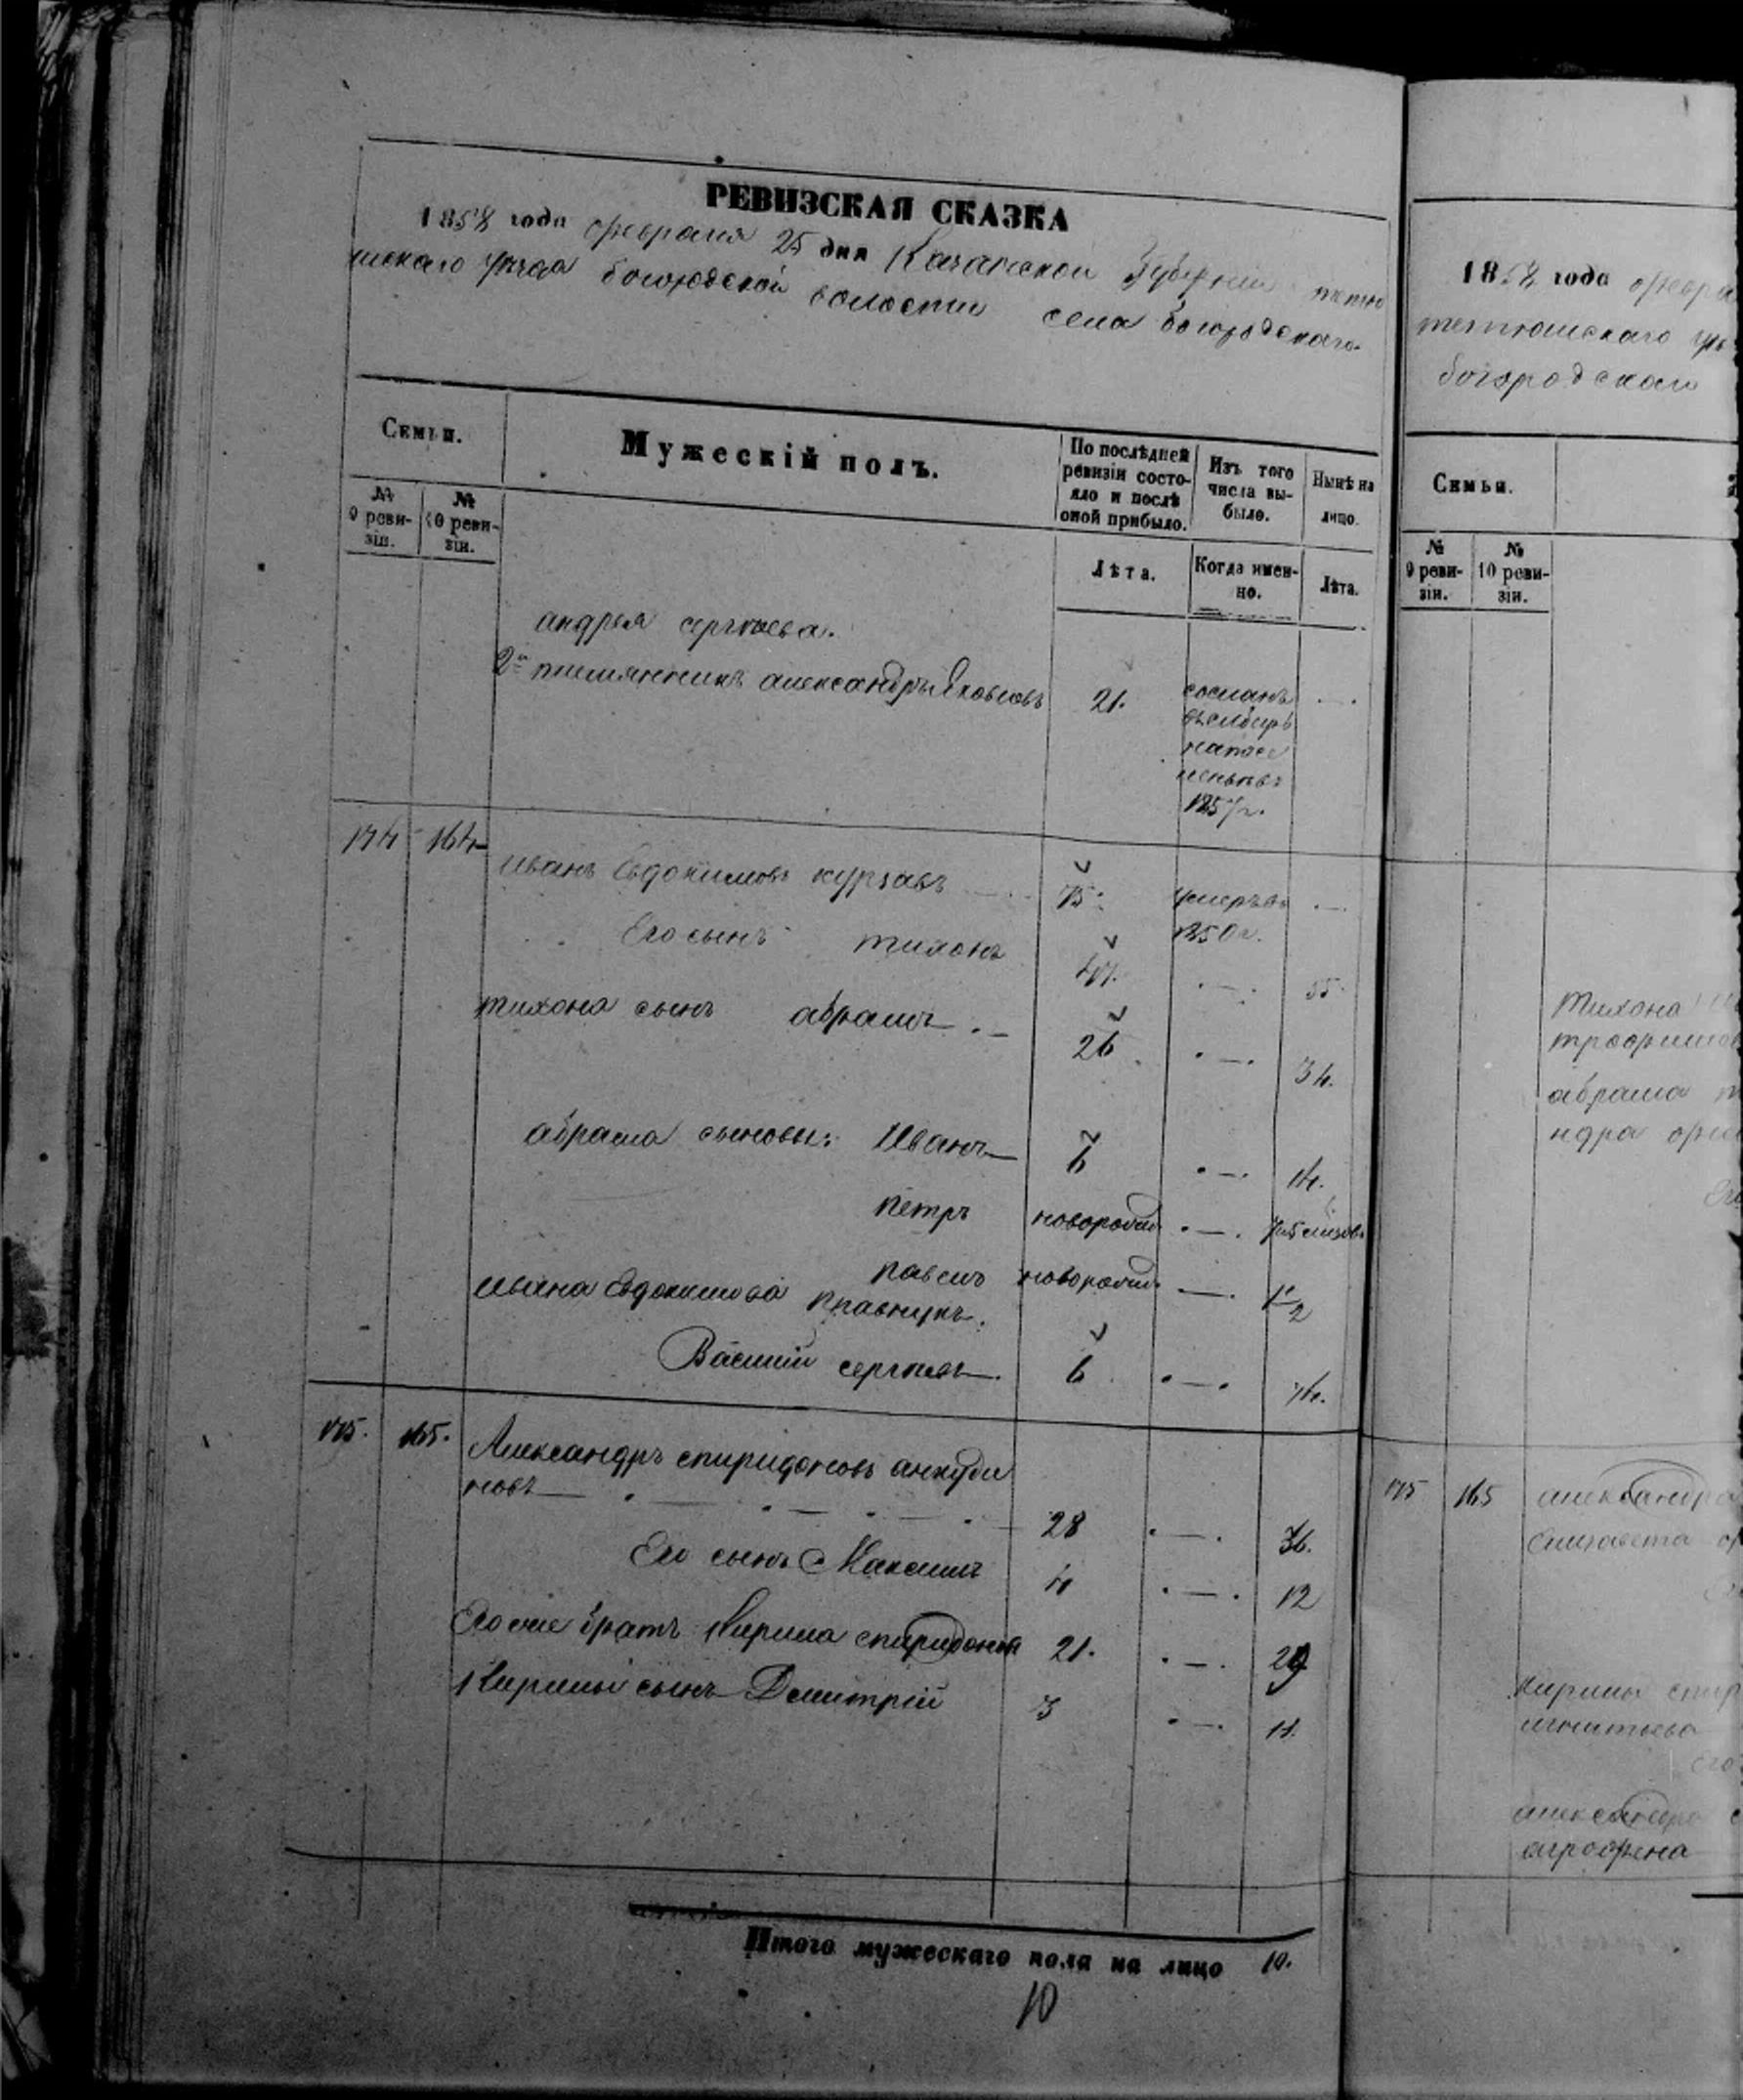 РЕВИЗСКАЯ СКАЗКА
1858 года февраля 25 дня Казанской Губерніи тетю
шскаго уѣзда богородской волости села богородскаго.
Семьи.
Мужескій полъ.
По послѣдней ревизіи состояло и послѣ оной прибыло.
Изъ того числа выбыло.
Нынѣ на лицо.
№ 9 ревизіи.
№ 10 ревизіи.
Лѣта.
Когда именно.
Лѣта.
андрея сергѣева.
2й племянникъ александръ Яковлевъ 21. сосланъ
въ сибирь
на посе
леніе въ
1857 г.
174 164 Иванъ Евдокимовъ 75. умеръ въ
1850 г.
Его сынъ тихонъ 47. 55.
тихона сынъ абрамъ 26 34.
абрама сыновья: Иванъ 6 14.
петръ новорожд.
павелъ новорожд. 1/2
Ивана Евдокимова правнукъ.
Василій сергѣевъ 6 14.
175. 165. Александръ спиридоновъ анкуди
новъ 28 36.
Его сынъ Максимъ 4 12
Его же братъ Кирила спиридоновъ 21. 29
Кирилы сынъ Дмитрій 3 11.
Итого мужескаго пола на лицо 10.
10
1858 года февра
тетюшскаго уѣ
богородскаго
Семьи.
№ 9 ревизіи.
№ 10 ревизіи.
Тихона
трофимов
абрама
175 165 александра
Елизавета
Кирилы спир
игнатьева
его
александра
агрофена